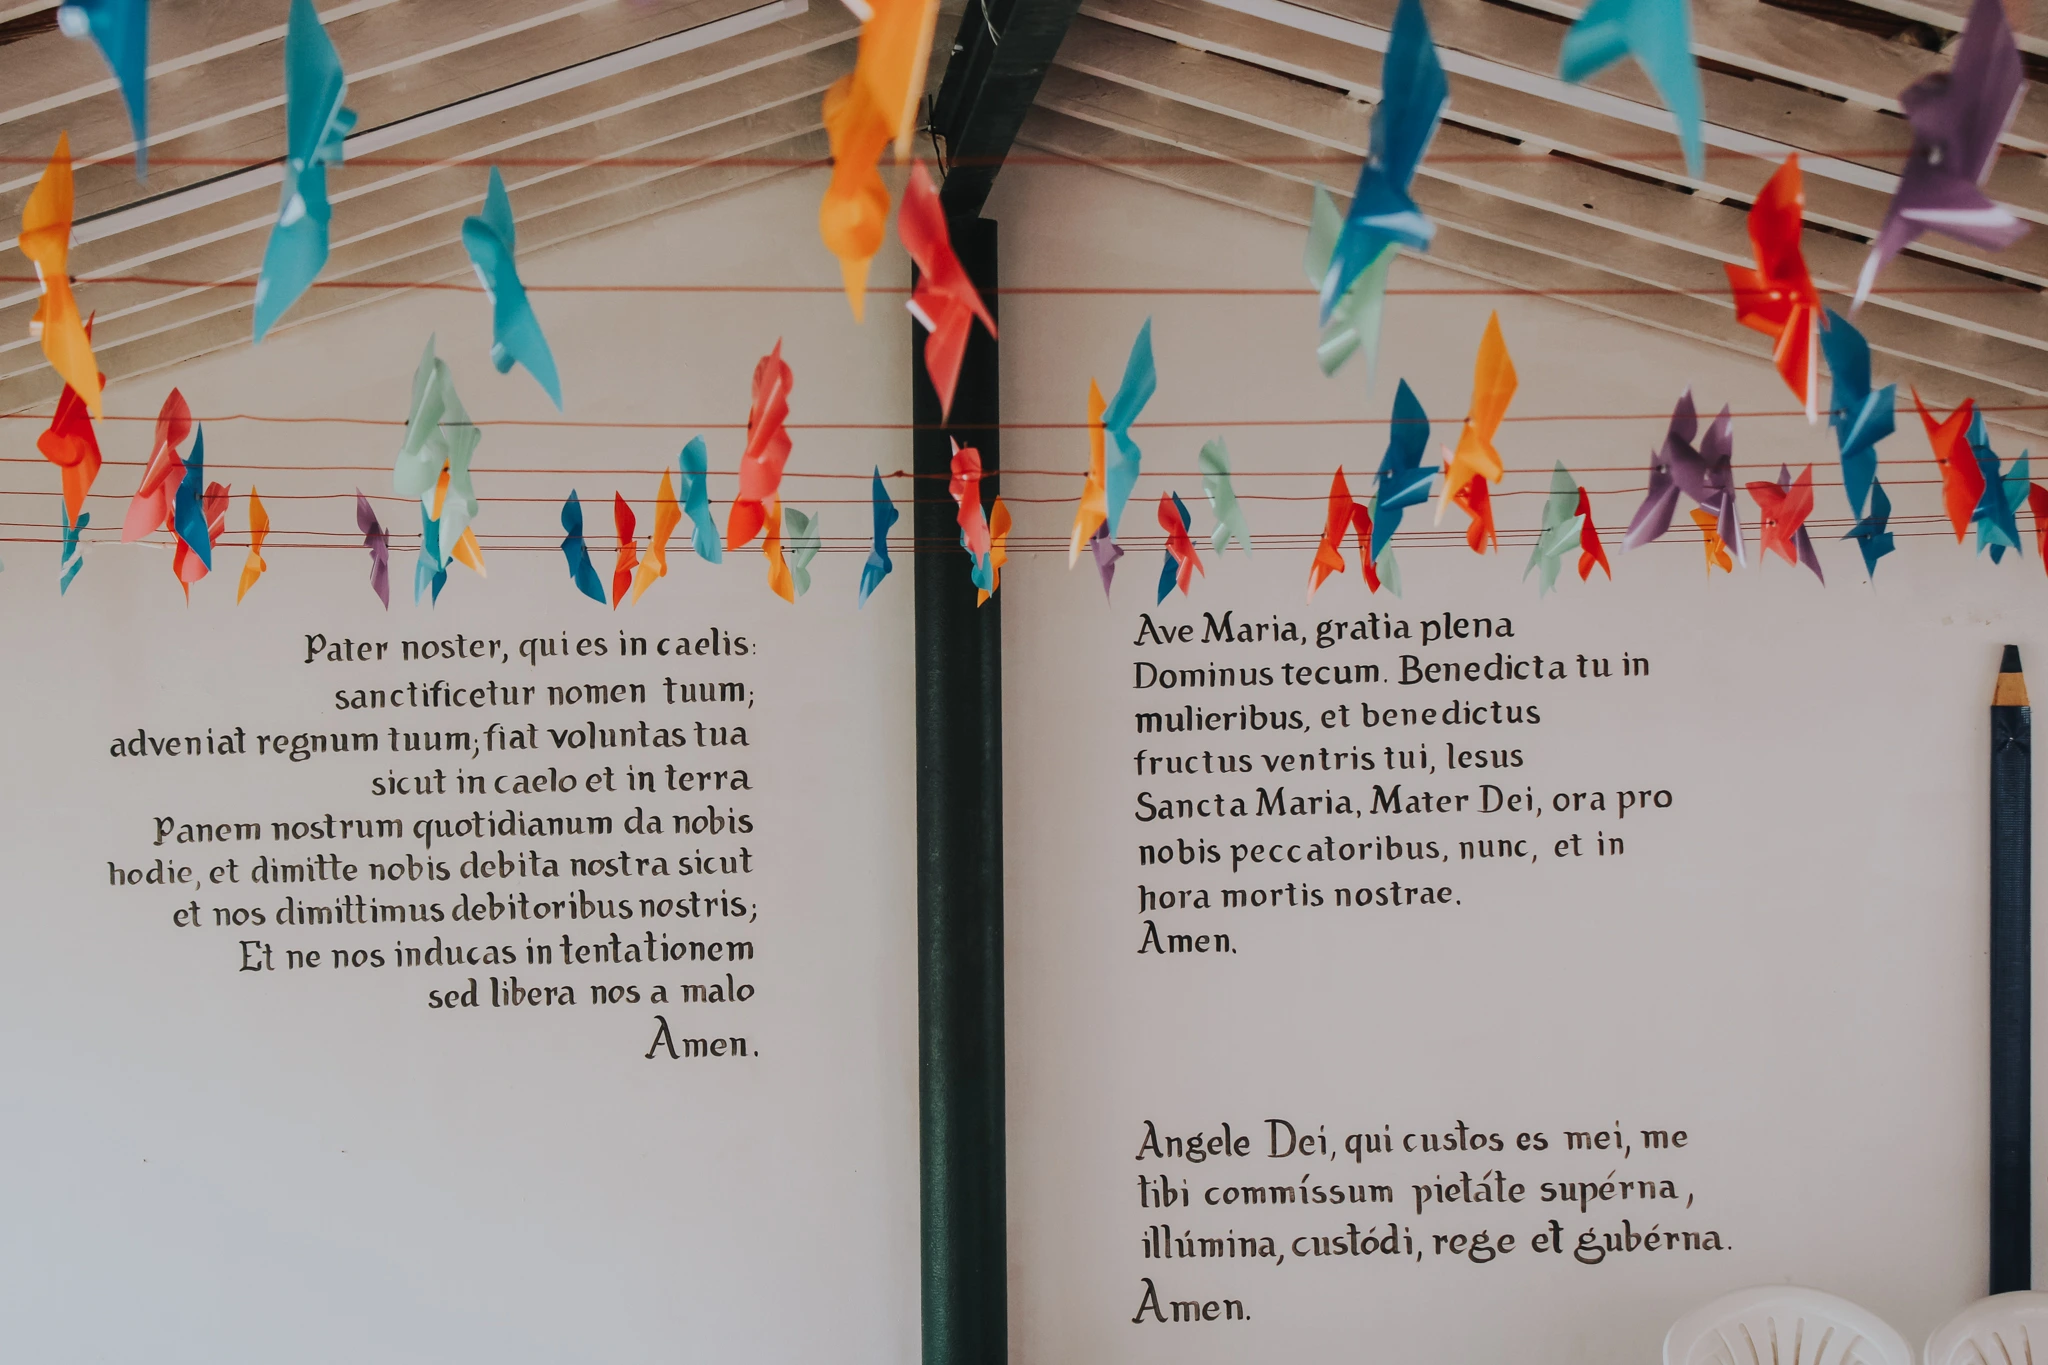 Pater noster, qui es in caelis:
sanctificetur nomen tuum;
adveniat regnum tuum; fiat voluntas tua
sicut in caelo et in terra
Panem nostrum quotidianum da nobis
hodie, et dimitte nobis debita nostra sicut
et nos dimittimus debitoribus nostris;
Et ne nos inducas in tentationem
sed libera nos a malo
Amen.
Ave Maria, gratia plena
Dominus tecum. Benedicta tu in
mulieribus, et benedictus
fructus ventris tui, Iesus
Sancta Maria, Mater Dei, ora pro
nobis peccatoribus, nunc, et in
hora mortis nostrae.
Amen.
Angele Dei, qui custos es mei, me
tibi commíssum pietáte supérna,
illúmina, custódi, rege et gubérna.
Amen.